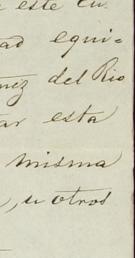 este cu
ad equi-
nez del Rio
ar esta
misma
, u otros